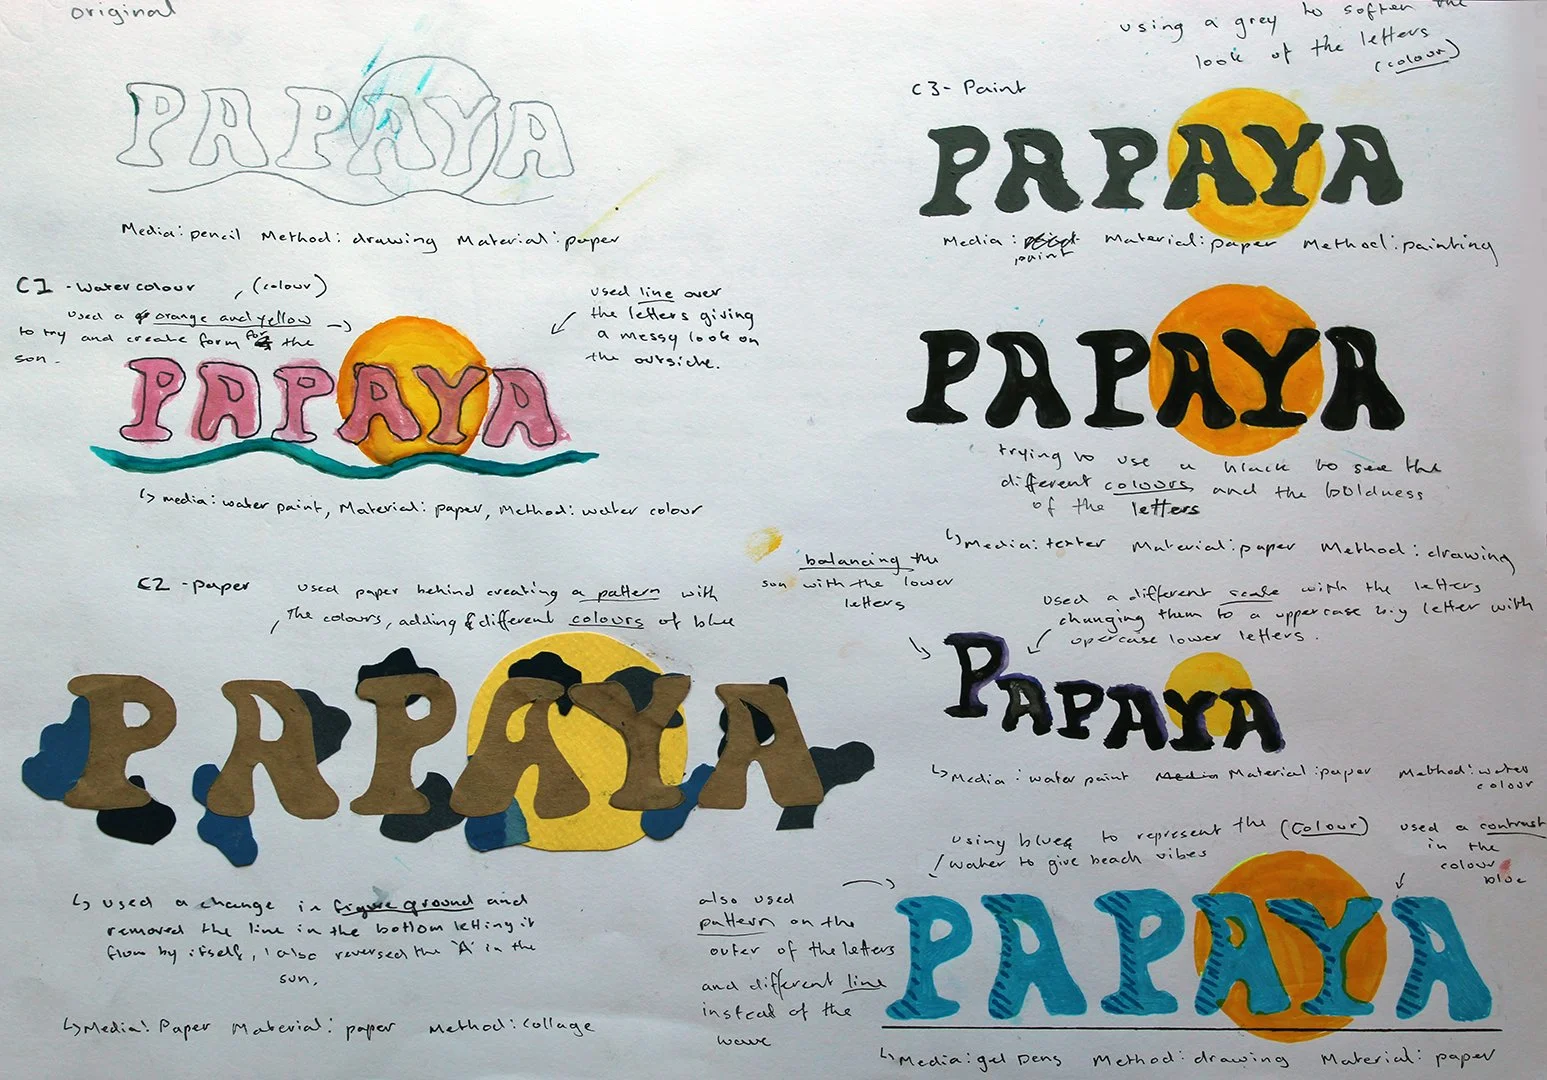 original
PAPAYA
Media: pencil Method: drawing Material: paper
C1 - Watercolour , (colour)
used a orange and yellow
to try and create form for the
son.
used line over
the letters giving
a messy look on
the outside.
PAPAYA
media: water paint, Material: paper, Method: water colour
C2 - paper used paper behind creating a pattern with
the colours, adding different colours of blue
PAPAYA
used a change in figure ground and
removed the line in the bottom letting it
flow by itself, I also reversed the 'A' in the
sun.
Media: Paper Material: paper Method: collage
using a grey to soften the
look of the letters
(colour)
C3 - Paint
PAPAYA
Media: paint Material: paper Method: painting
PAPAYA
trying to use a black to see the
different colours and the boldness
of the letters
Media: texter Material: paper Method: drawing
balancing the
sun with the lower
letters
used a different scale with the letters
changing them to a uppercase big letter with
upercase lower letters.
PAPAYA
Media: water paint Material: paper Method: water
colour
using blues to represent the (Colour)
water to give beach vibes
used a contrast
in the
colour
blue
also used
pattern on the
outer of the letters
and different line
instead of the
wave
PAPAYA
Media: gel pens Method: drawing Material: paper